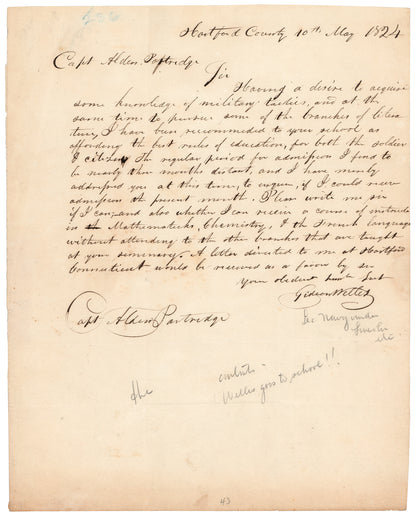 636
Hartford County 10th May 1824
Capt Alden Partridge
Sir
Having a desire to acquire
some knowledge of military tactics, and at the
same time to pursue some of the branches of litera
ture, I have been recommended to your school as
affording the best modes of education, for both the soldier
& citizen. The regular period for admission I find to
be nearly three months distant, and I have merely
addressed you at this time, to enquire, if I could receive
admission the present month. Please write me sir
if I can, and also whether I can receive a course of instruction
in Mathematicks, Chemistry, & the French language
without attending to the other branches that are taught
at your seminary. A letter directed to me at Hartford
Connecticut would be received as a favor by sir
Your obedient humb Servt
Gideon Welles
Capt. Alden Partridge
Sec Navy under
Lincoln
etc
Welles goes to school!!
the
43